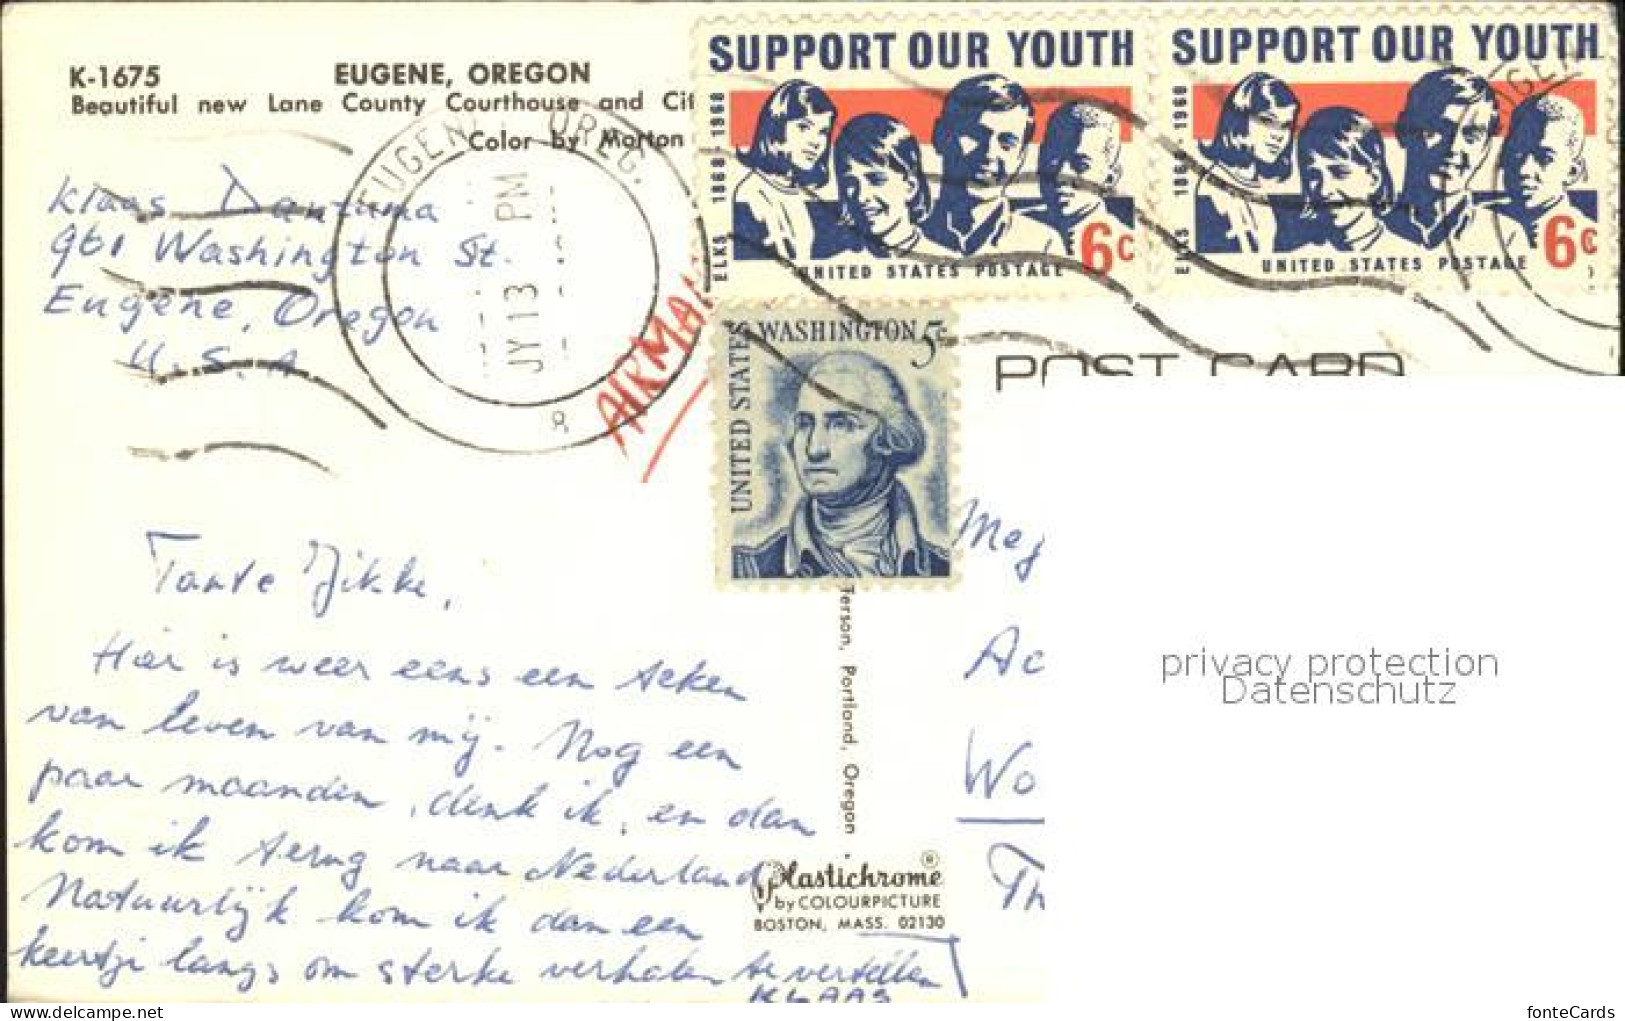 K-1675
EUGENE, OREGON
Beautiful new Lane County Courthouse and Cit
Color by Morton
Klaas Dantuma
961 Washington St.
Eugene, Oregon
U.S.A
EUGENE OREG.
JY 13 PM
AIRMAI
SUPPORT OUR YOUTH
ELKS 1868-1968
6c
UNITED STATES POSTAGE
SUPPORT OUR YOUTH
ELKS 1868-1968
6c
UNITED STATES POSTAGE
WASHINGTON 5c
UNITED STATES
POST CARD
Tante Jikke,
Hier is weer eens een teken
van leven van mij. Nog een
paar maanden, denk ik, en dan
kom ik terug naar Nederland
Natuurlijk kom ik dan een
keertje langs om sterke verhalen te vertellen
KLAAS
terson, Portland, Oregon
Plastichrome ®
by COLOURPICTURE
BOSTON, MASS. 02130
Mej
Ac
Wo
Th
privacy protection
Datenschutz
delcampe.net
fonteCards